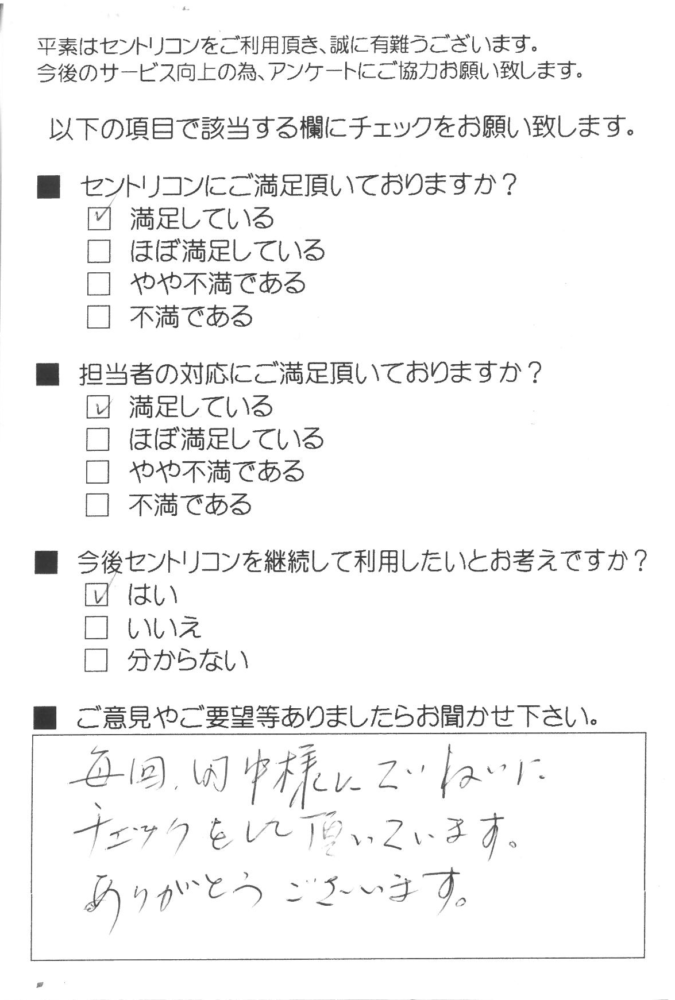 平素はセントリコンをご利用頂き、誠に有難うございます。
今後のサービス向上の為、アンケートにご協力お願い致します。
以下の項目で該当する欄にチェックをお願い致します。
■ セントリコンにご満足頂いておりますか？
☑ 満足している
□ ほぼ満足している
□ やや不満である
□ 不満である
■ 担当者の対応にご満足頂いておりますか？
☑ 満足している
□ ほぼ満足している
□ やや不満である
□ 不満である
■ 今後セントリコンを継続して利用したいとお考えですか？
☑ はい
□ いいえ
□ 分からない
■ ご意見やご要望等ありましたらお聞かせ下さい。
毎回、田中様にていねいに
チェックをして頂いています。
ありがとうございます。